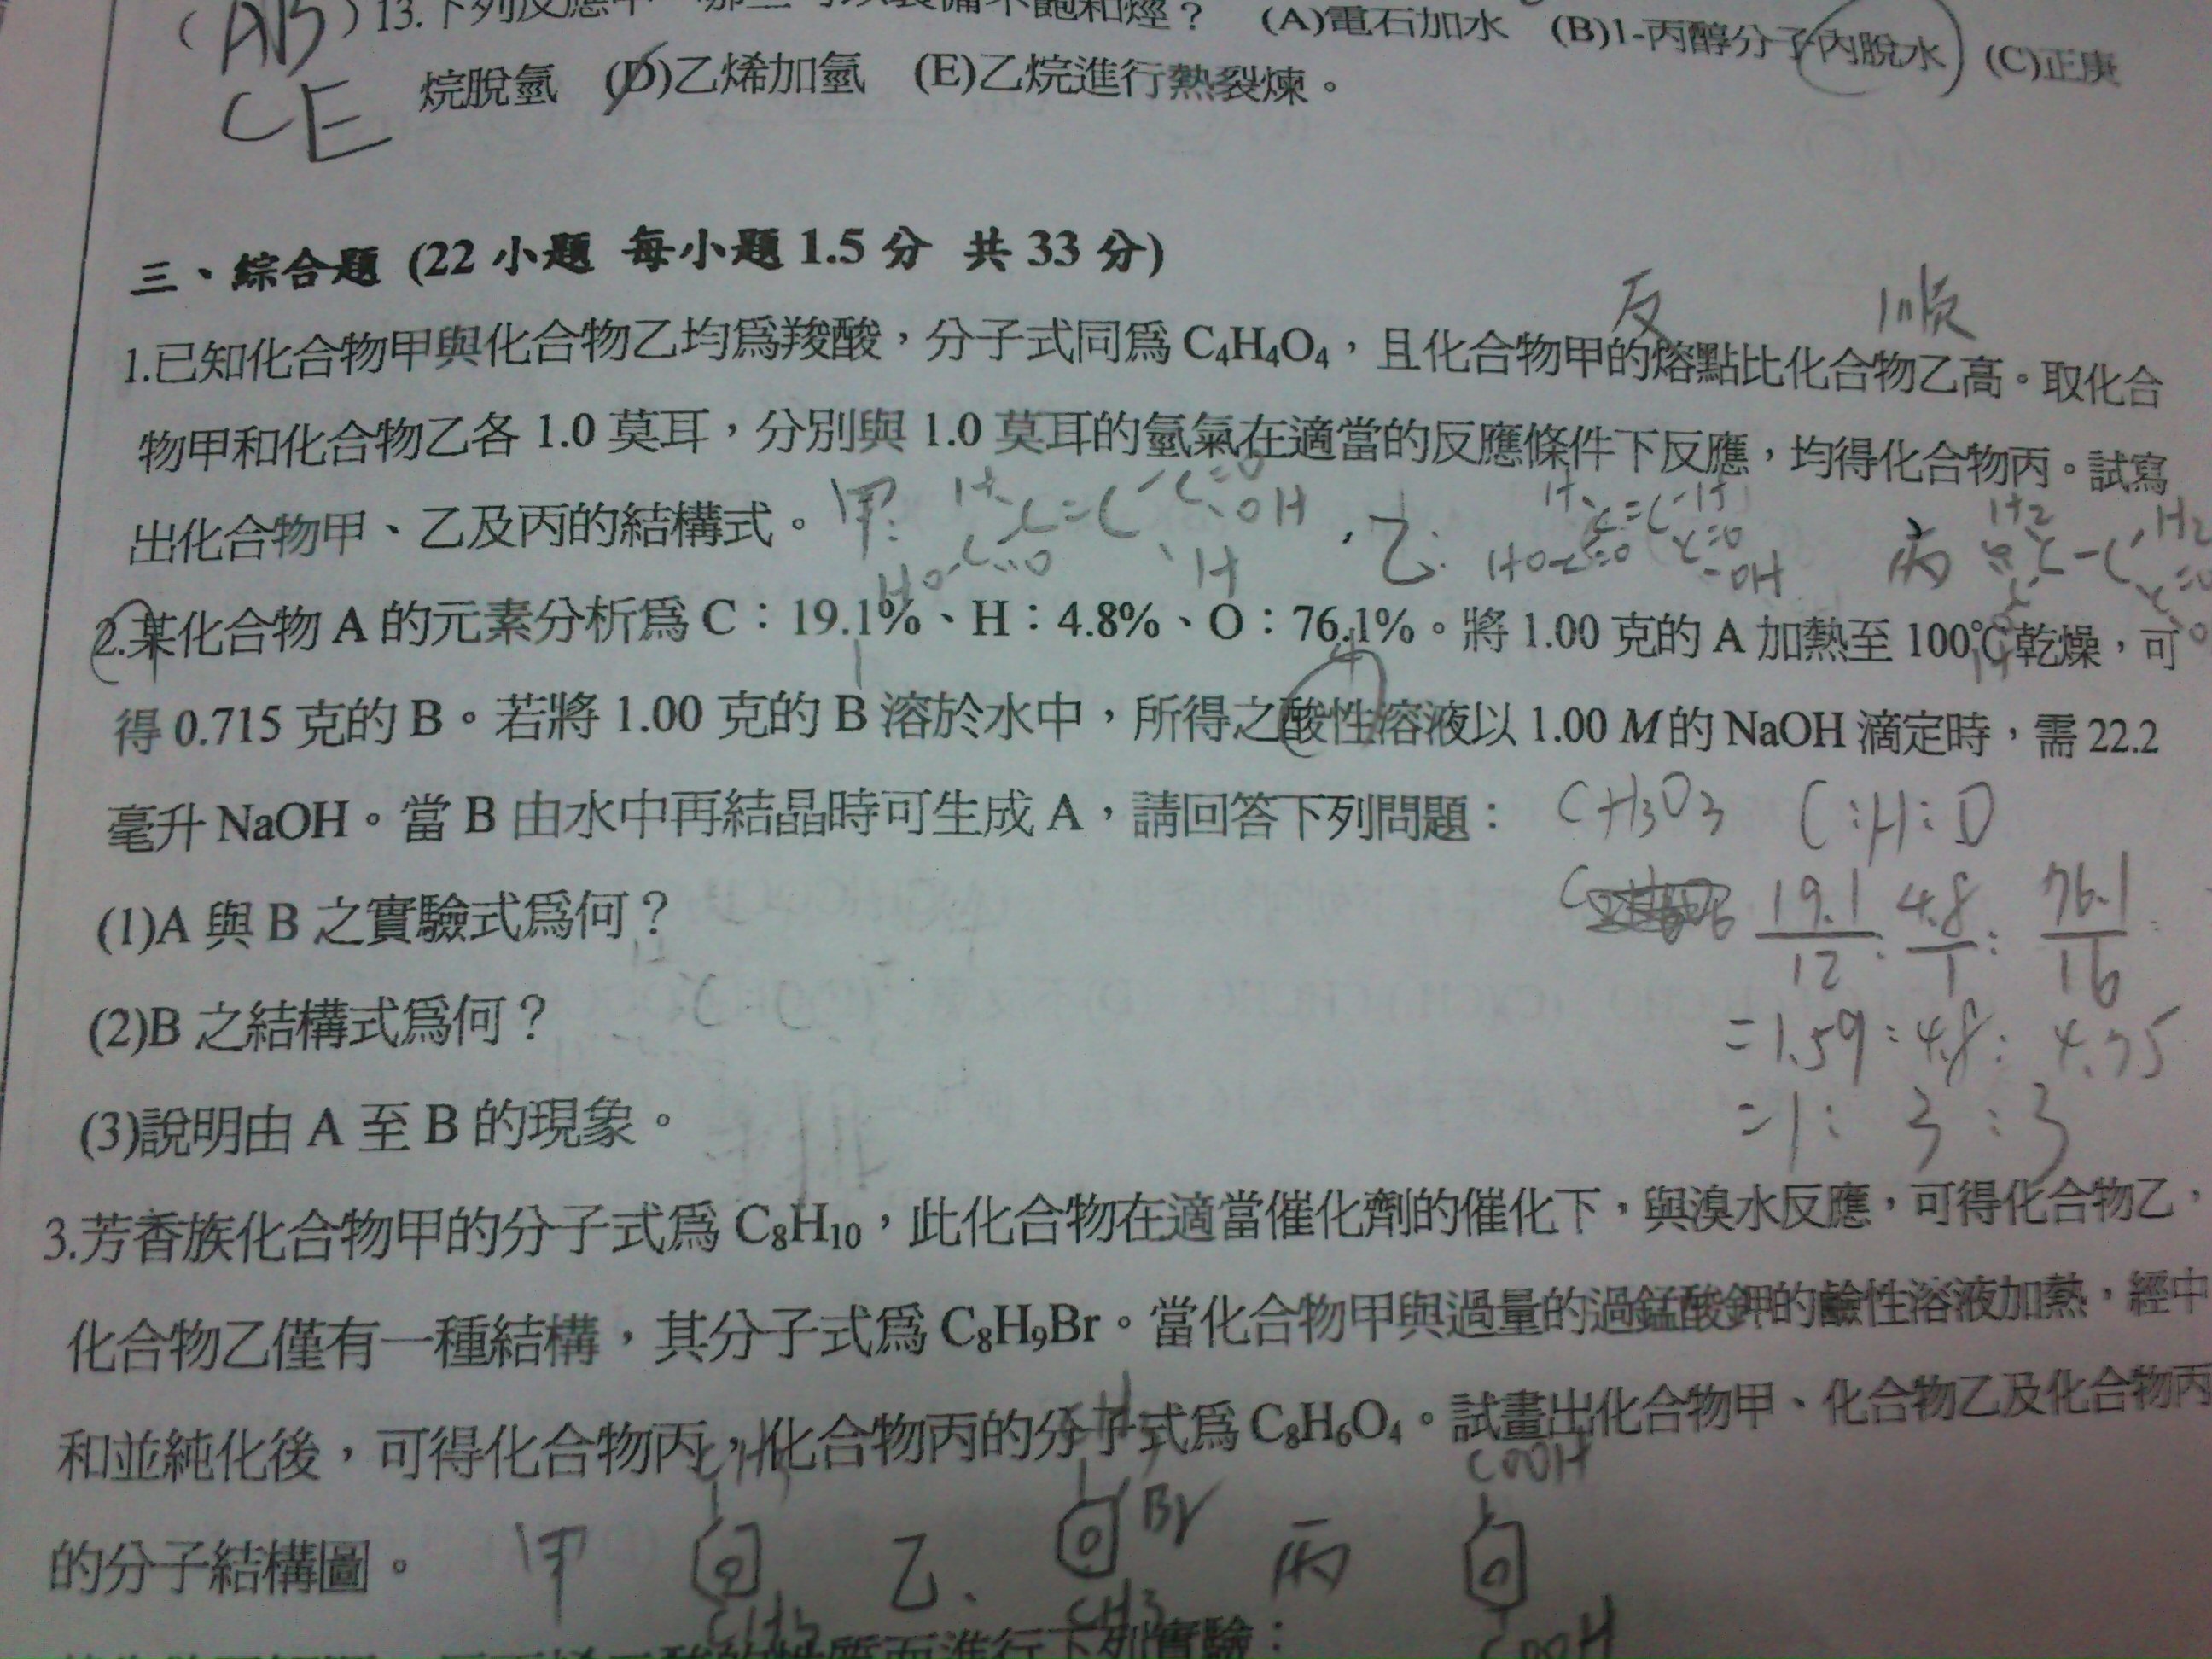 (AB CE)13.下列反應中，哪些可以製備不飽和烴？ (A)電石加水 (B)1-丙醇分子內脫水 (C)正庚
烷脫氫 (D)乙烯加氫 (E)乙烷進行熱裂煉。
三、綜合題 (22 小題 每小題 1.5 分 共 33 分)
反 順
1.已知化合物甲與化合物乙均為羧酸，分子式同為 C₄H₄O₄，且化合物甲的熔點比化合物乙高。取化合
物甲和化合物乙各 1.0 莫耳，分別與 1.0 莫耳的氫氣在適當的反應條件下反應，均得化合物丙。試寫
出化合物甲、乙及丙的結構式。 甲: 乙: 丙
2.某化合物 A 的元素分析為 C：19.1%、H：4.8%、O：76.1%。將 1.00 克的 A 加熱至 100℃乾燥，可
得 0.715 克的 B。若將 1.00 克的 B 溶於水中，所得之酸性溶液以 1.00 M 的 NaOH 滴定時，需 22.2
毫升 NaOH。當 B 由水中再結晶時可生成 A，請回答下列問題： CH₃O₃ C:H:O
(1)A 與 B 之實驗式為何？ 19.1/12 : 4.8/1 : 76.1/16
(2)B 之結構式為何？ =1.59:4.8:4.75
(3)說明由 A 至 B 的現象。 =1:3:3
3.芳香族化合物甲的分子式為 C₈H₁₀，此化合物在適當催化劑的催化下，與溴水反應，可得化合物乙，
化合物乙僅有一種結構，其分子式為 C₈H₉Br。當化合物甲與過量的過錳酸鉀的鹼性溶液加熱，經中
和並純化後，可得化合物丙，化合物丙的分子式為 C₈H₆O₄。試畫出化合物甲、化合物乙及化合物丙
的分子結構圖。 甲 CH₃ CH₃ 乙、 CH₃ Br CH₃ 丙 COOH COOH
質而進行下列實驗：